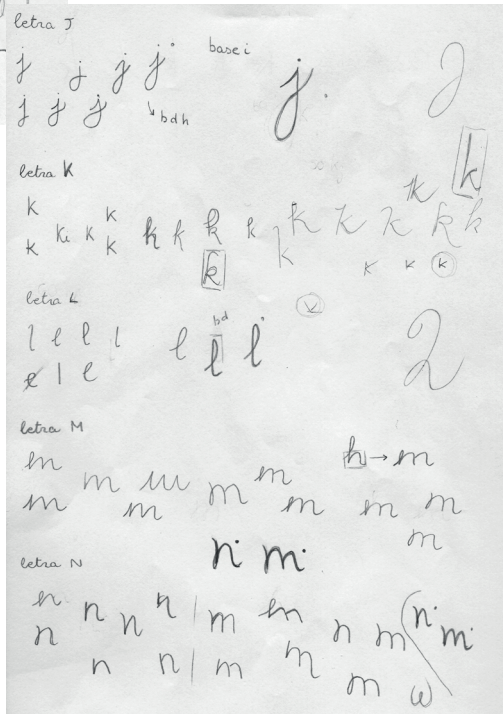 letra J
j j j j base i j J
j j j bdh
letra K
k k k k k k k k k k k k k k k k
k k k k k k k k
letra L
l l l l l bd l l 2
e l e
letra M
m m m m m h → m
m m m m m
m
n m
letra N
n n n n m m n m n m
n n n m m m w